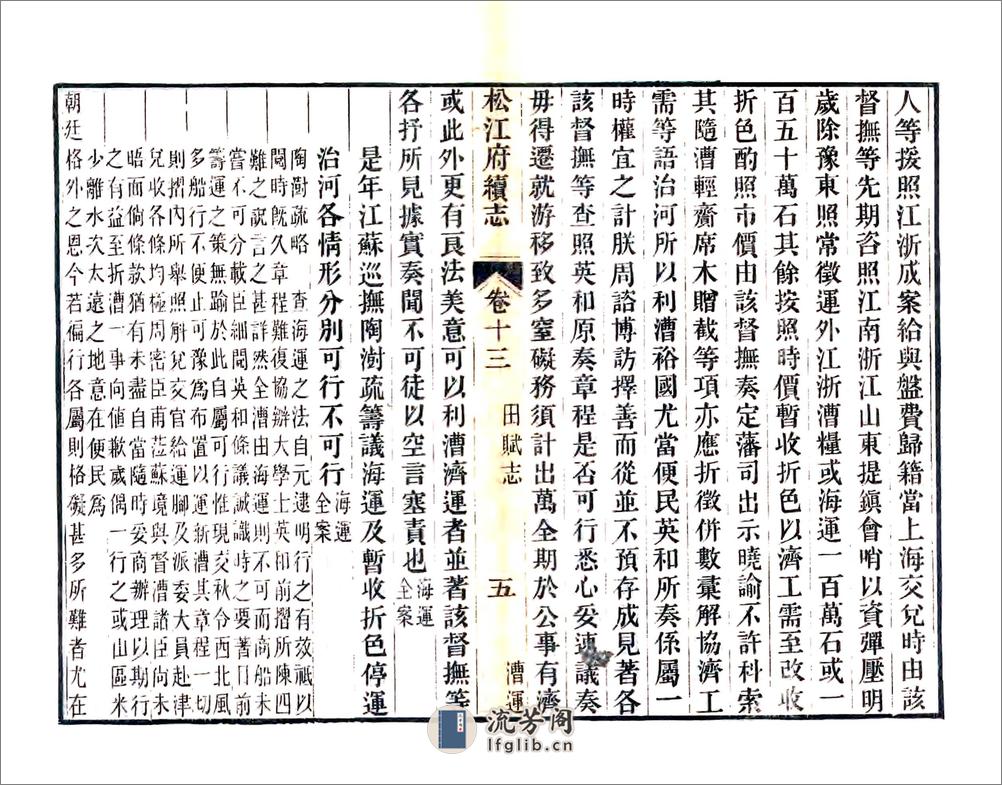 人等援照江浙成案給與盤費歸籍當上海交兌時由該
督撫等先期咨照江南浙江山東提鎮會哨以資彈壓明
歲除豫東照常徵運外江浙漕糧或海運一百萬石或一
百五十萬石其餘按照時價暫收折色以濟工需至改收
折色酌照市價由該督撫奏定藩司出示曉諭不許科索
其隨漕輕賫席木贈截等項亦應折徵併數彙解協濟工
需等語治河所以利漕裕國尤當便民英和所奏係屬一
時權宜之計朕周諮博訪擇善而從並不預存成見著各
該督撫等查照英和原奏章程是否可行悉心妥速議奏
毋得遷就游移致多窒礙務須計出萬全期於公事有濟
松江府續志
卷十三
田賦志
五
漕運
或此外更有良法美意可以利漕濟運者並著該督撫等
各抒所見據實奏聞不可徒以空言塞責也海運
全案
是年江蘇巡撫陶澍疏籌議海運及暫收折色停運
治河各情形分別可行不可行海運
全案
陶澍疏略 查海運之法自元逮明行之有效祇以
閱時旣久章程難復協辦大學士英和前摺所陳四
難之說言之甚詳然全漕出海運則不可而商船未
嘗不可分載臣細閱英和條議誠識時之要著目前
籌運之策無踰於此自屬可行惟現交秋令西北風
多船行不便止可豫爲布置以運新漕其章程一切
則摺內所舉照解兌交官給運腳及派委大員赴津
兌收各條均極周密臣甫蒞蘇境與督漕諸臣尙未
晤面而倘條款猶有未盡自當隨時妥商辦理以期行
之有益至折漕一事向値歉歲偶一行之或山區米
少離水次太遠之地意在便民爲
朝廷格外之恩今若徧行各屬則格礙甚多所難者尤在
流芳阁
lfglib.cn